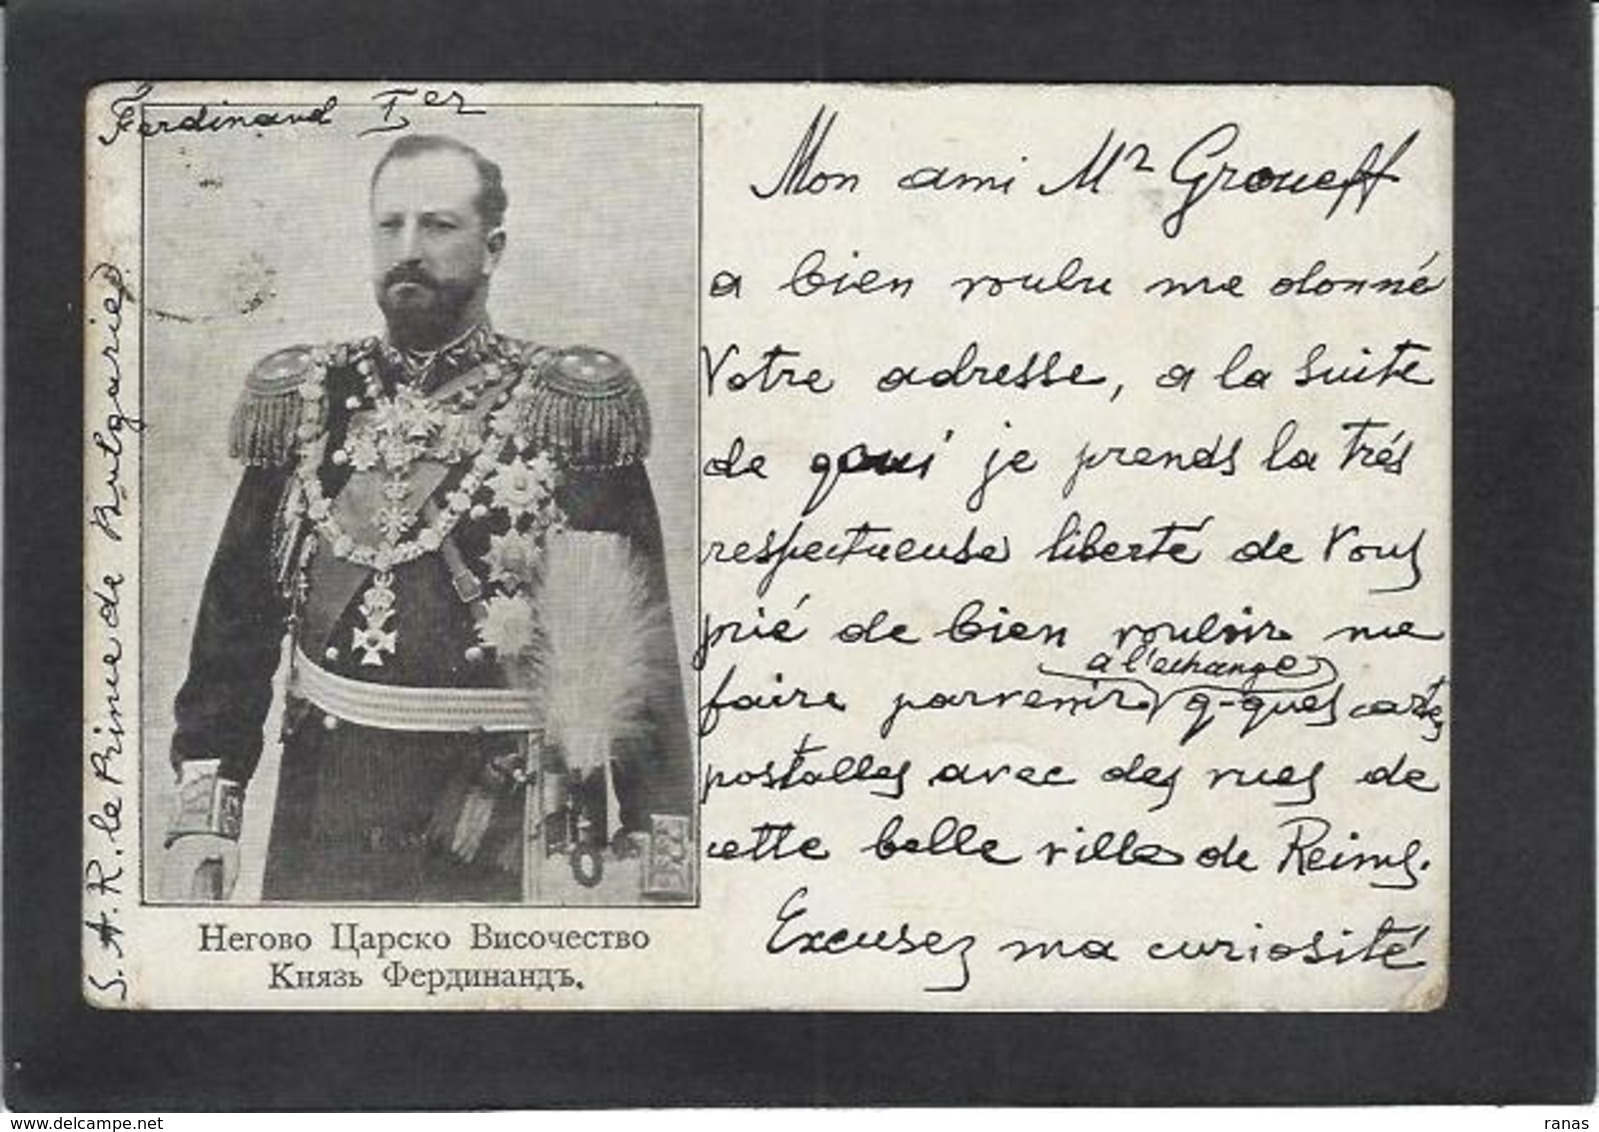 Ferdinand Ier
S. A. R. le Prince de Bulgarie
Негово Царско Височество
Князь Фердинандъ.
Mon ami Mr Groueff
a bien voulu me donné
Votre adresse, a la suite
de quoi je prends la trés
respectueuse liberté de Vous
prié de bien vouloir me
a l'echange
faire parvenir q-ques cartes
postalles avec des vues de
cette belle ville de Reims.
Excusez ma curiosité
www.delcampe.net
ranas